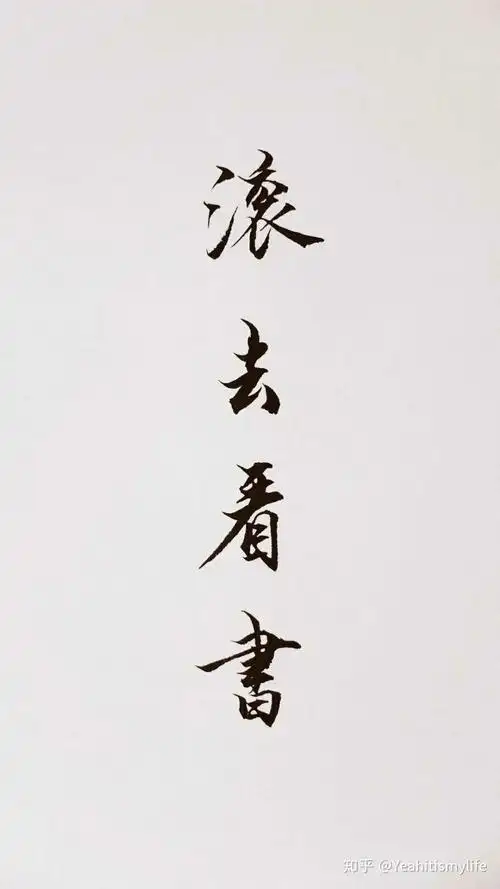 滚去看書
知乎 @Yeahitismylife